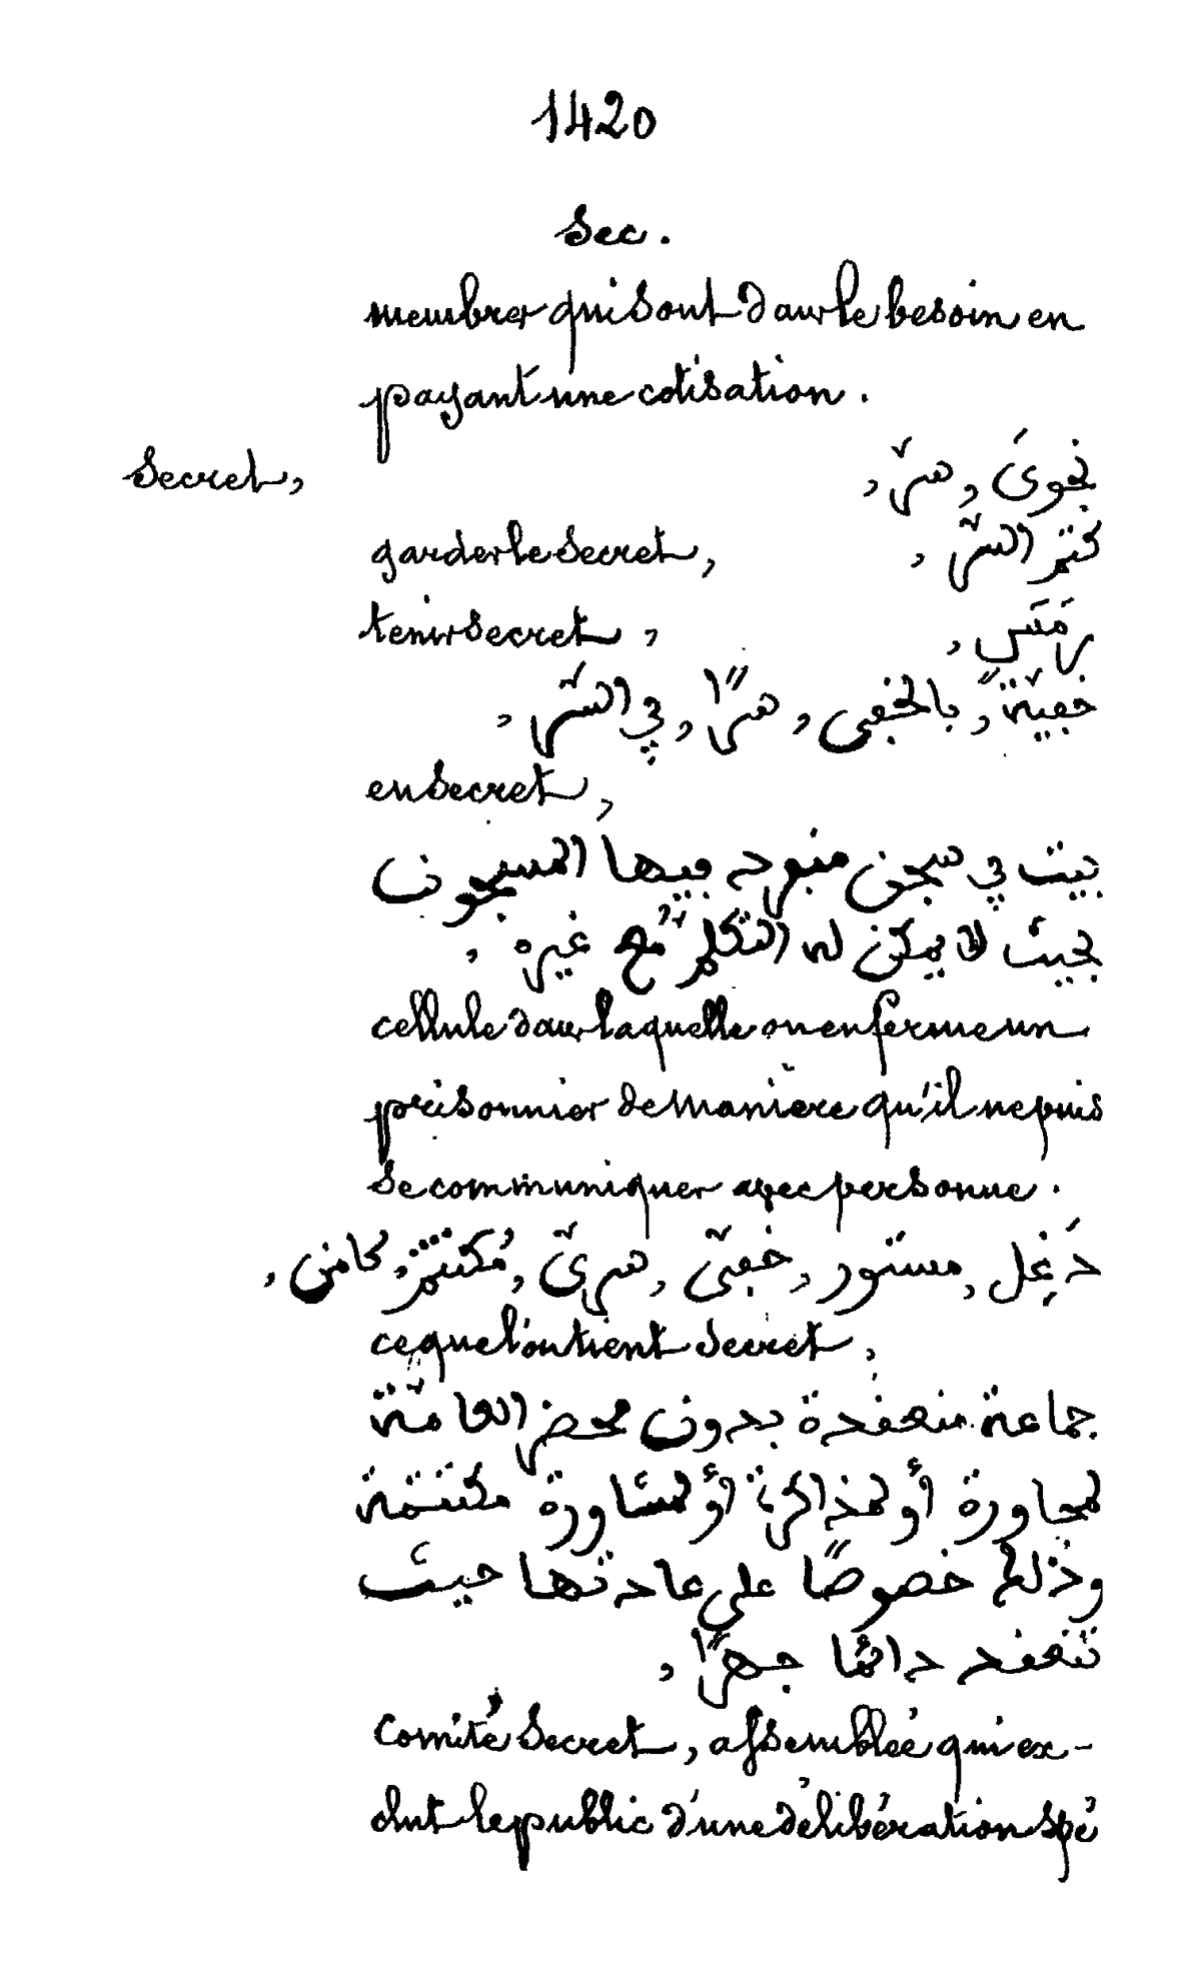 1420
Sec.
membres qui sont dans le besoin en
payant une cotisation.
Secret, نجوىَ, سرّ,
garder le secret, كتم السّر,
tenir secret, رمَّس,
خفيّةً, بالخفى, سرًّا, في السّر,
en secret,
بيت في سجن منفرد فيها المسجون
بحيث لا يمكن له التكلّم مع غيره,
cellule dans laquelle on enferme un
prisonnier de manière qu'il ne puis
se communiquer avec personne.
دَغِل, مستور, خفىّ, سرىّ, مُكتتم, كامن,
ce que l'on tient secret,
جماعة منعقدة بدون محضر العامّة
لمحاورة أو لمذاكرة أو لمشاورة مكتتمة
وذلك خصوصًا على عادتها حيث
تنعقد دائما جهرًا,
comité secret, assemblée qui ex-
clut le public d'une délibération spé